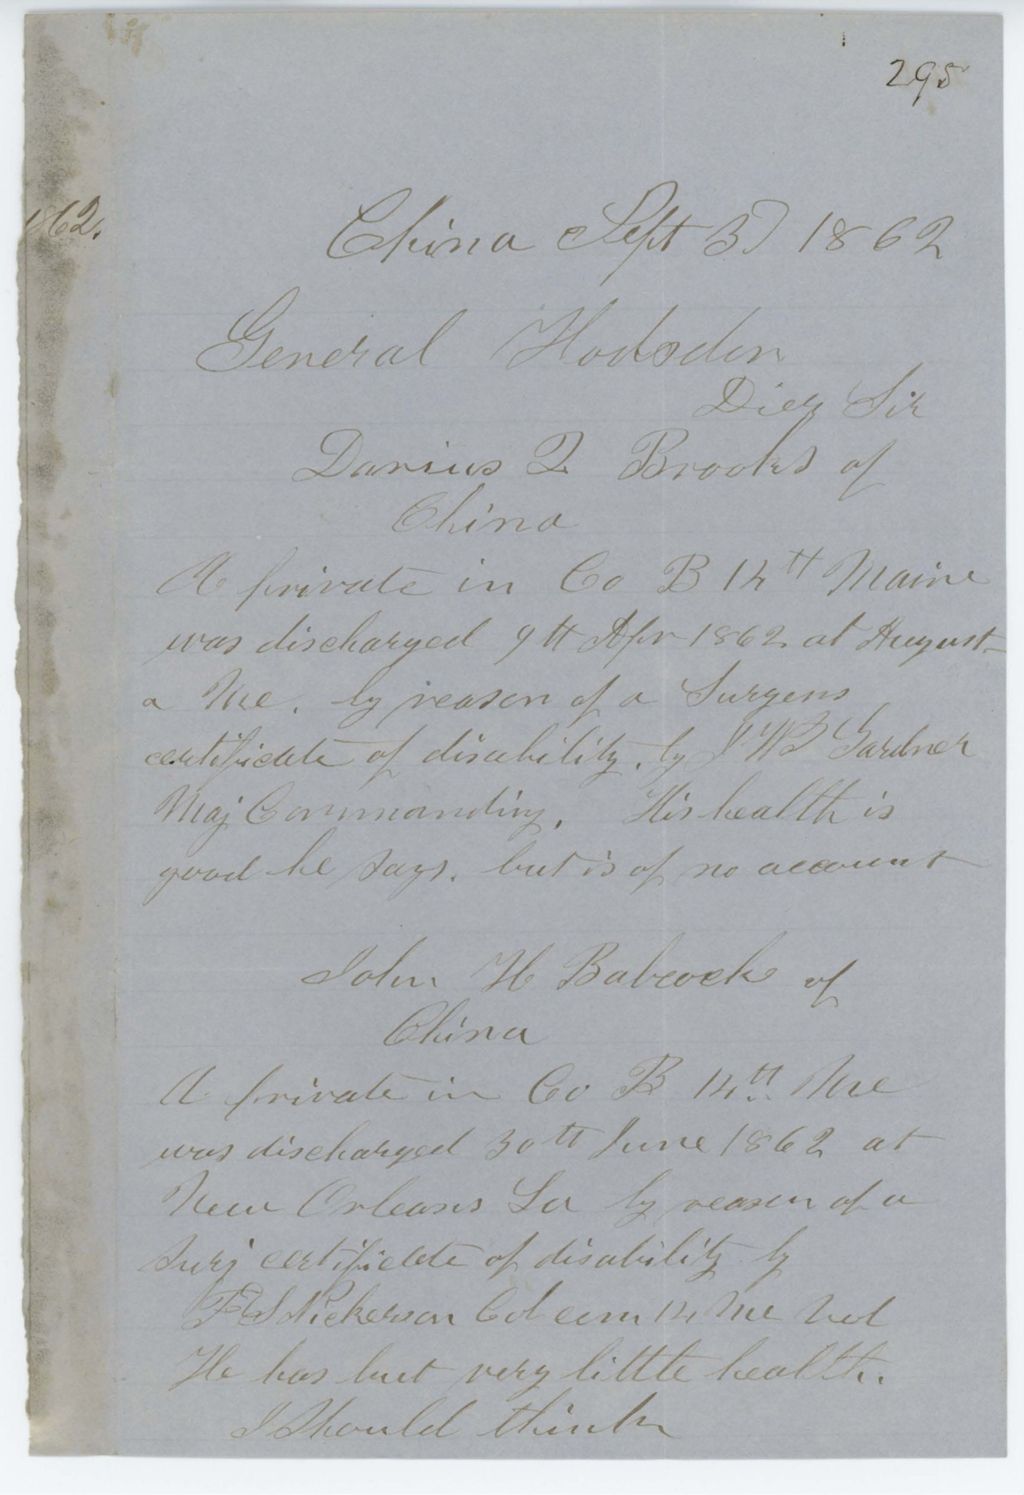 295
1862.
China Sept 3d 1862
General Hodsdon
Dier Sir
Darius Q Brooks of
China
A private in Co B 14th Maine
was discharged 9th Apr 1862 at August
a Me. by reason of a Surgens
certificate of disability. by J W T Gardner
Maj Commanding. His health is
good he says. but is of no account
John H Babcock of
China
A private in Co B 14th Me
was discharged 30th June 1862 at
New Orleans La by reason of a
surj certificate of disability by
F S Nickerson Col com 14 Me Vol
He has but very little health.
I should think